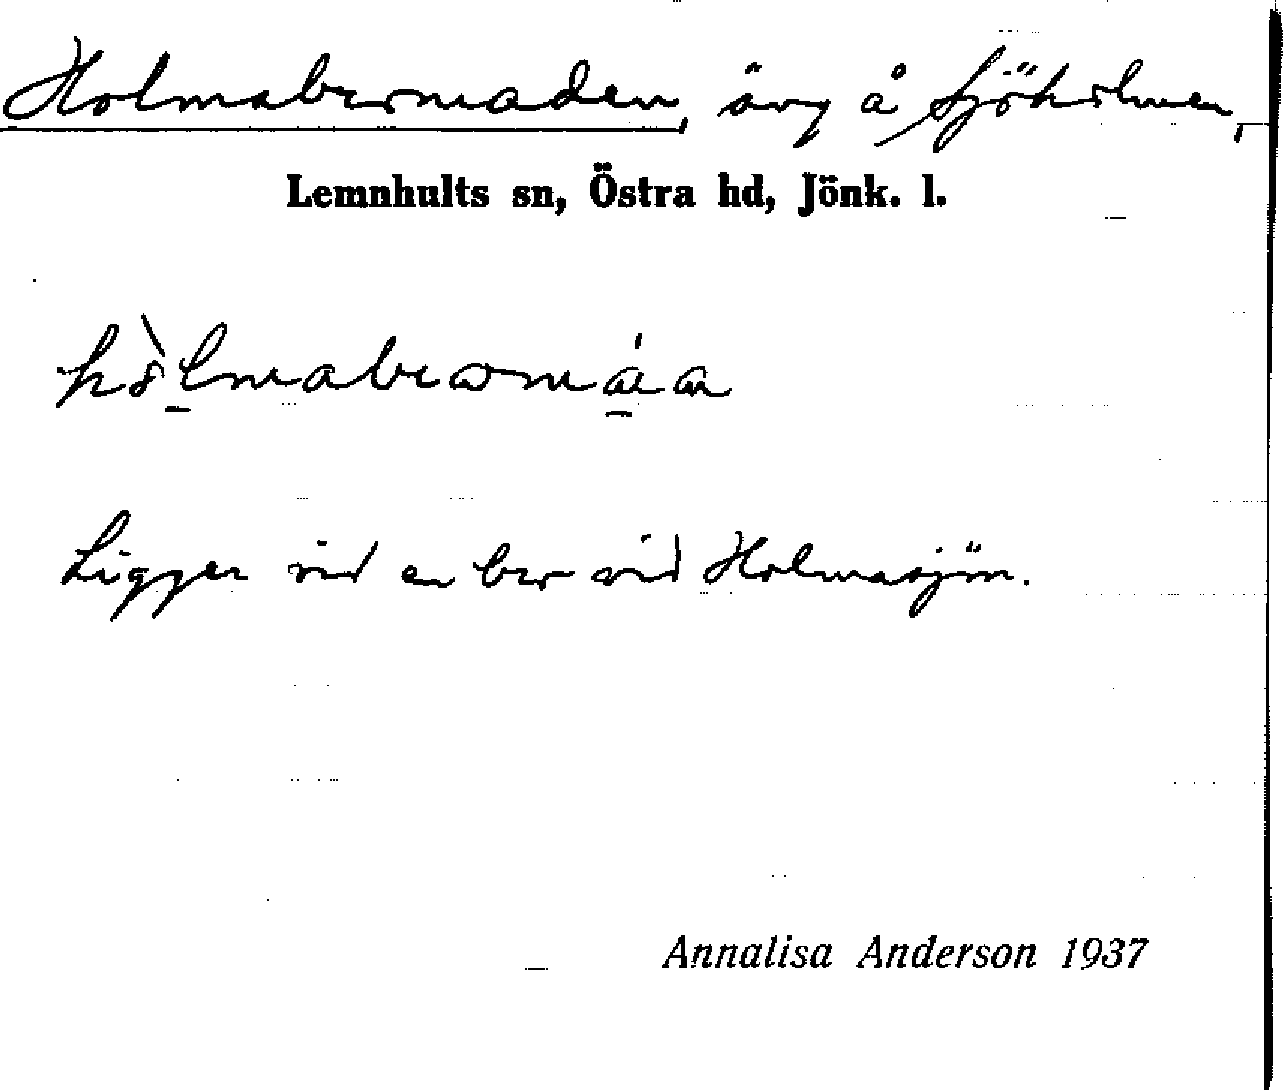 Holmabromaden, äng å Sjöholmen,
Lemnhults sn, Östra hd, Jönk. l.
Ligger vid en bro vid Holmasjön.
Annalisa Anderson 1937